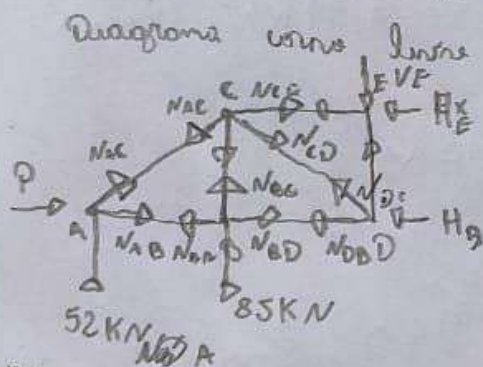 Diagrama corpo livre
NAC C NCE E VE
NAC NCD HE
P NBC N HB
A NAB NBA NBD NDB D
52KN 85KN
A